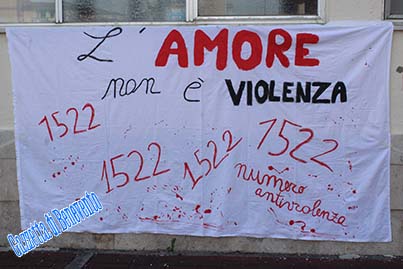 L'AMORE
non è VIOLENZA
1522
1522
1522
1522
numero
antiviolenza
Gazzetta di Benevento